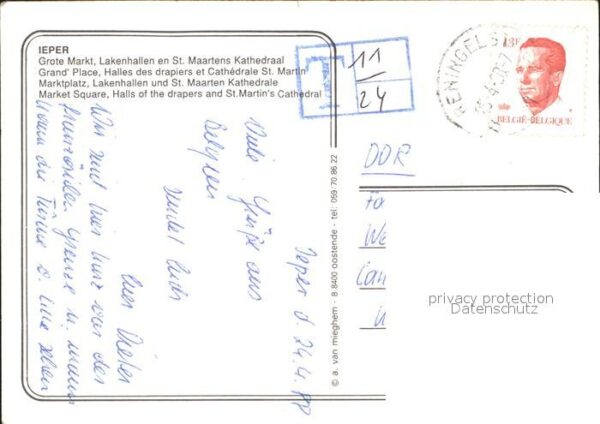 IEPER
Grote Markt, Lakenhallen en St. Maartens Kathedraal
Grand' Place, Halles des drapiers et Cathédrale St. Martin
Marktplatz, Lakenhallen und St. Maarten Kathedrale
Market Square, Halls of the drapers and St.Martin's Cathedral
T
11
24
13F
BELGIË-BELGIQUE
RENINGELST
DDR
Ieper d. 24.4.88
Viele Grüße aus
Belgien
sendet Euch
Euer Dieter
Wir sind hier kurz vor der
französischen Grenze u.
© a. van mieghem - B.8400 oostende - tel: 059-70.86.22
privacy protection
Datenschutz